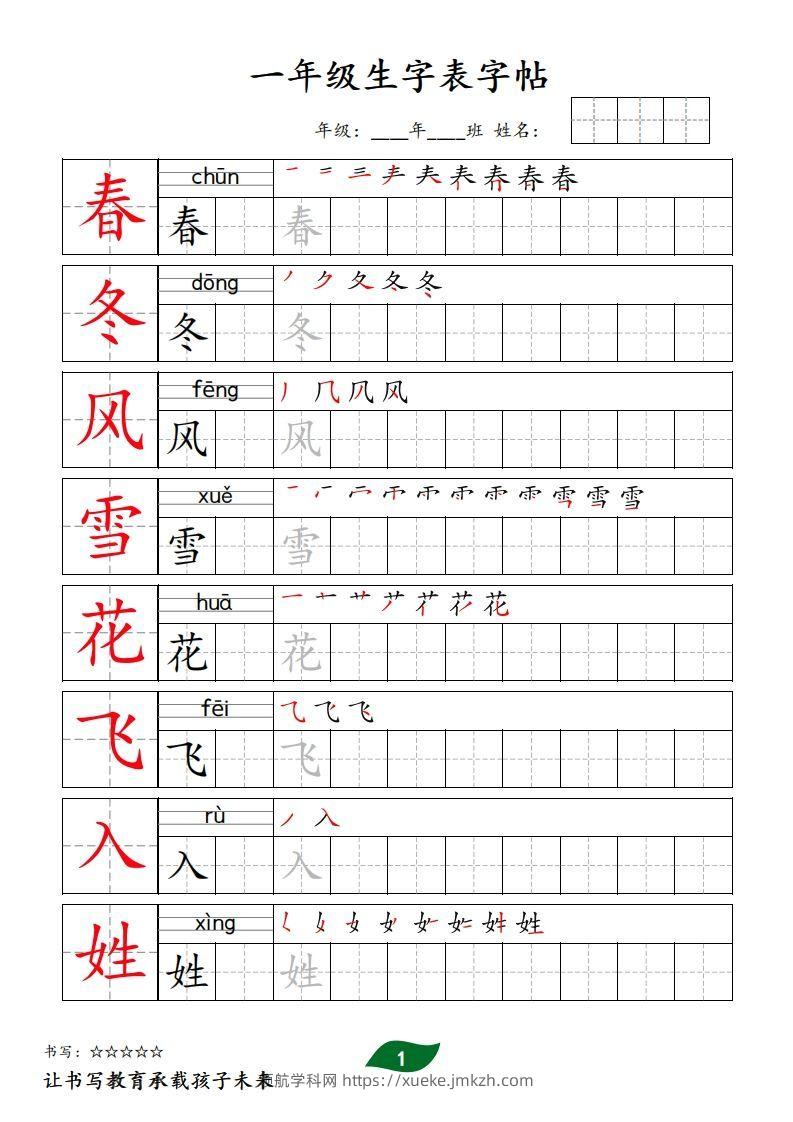 一年级生字表字帖
年级：____年____班 姓名：
春 chūn
春 春
冬 dōng
冬 冬
风 fēng
风 风
雪 xuě
雪 雪
花 huā
花 花
飞 fēi
飞 飞
入 rù
入 入
姓 xìng
姓 姓
书写：☆☆☆☆☆
1
让书写教育承载孩子未来
领航学科网 https://xueke.jmkzh.com